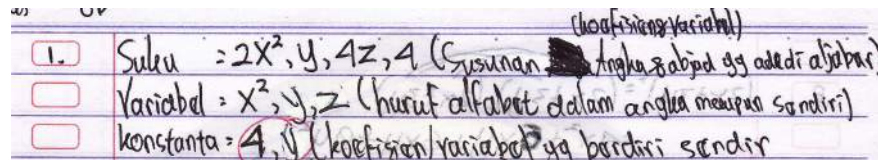 (koefisien & Variabel)
1. Suku = 2x², y, 4z, 4 (Susunan Angka & abjad yg ada di aljabar)
Variabel = x², y, z (huruf alfabet dalam angka maupun sendiri)
konstanta = 4, y (koefisien/variabel yg berdiri sendir